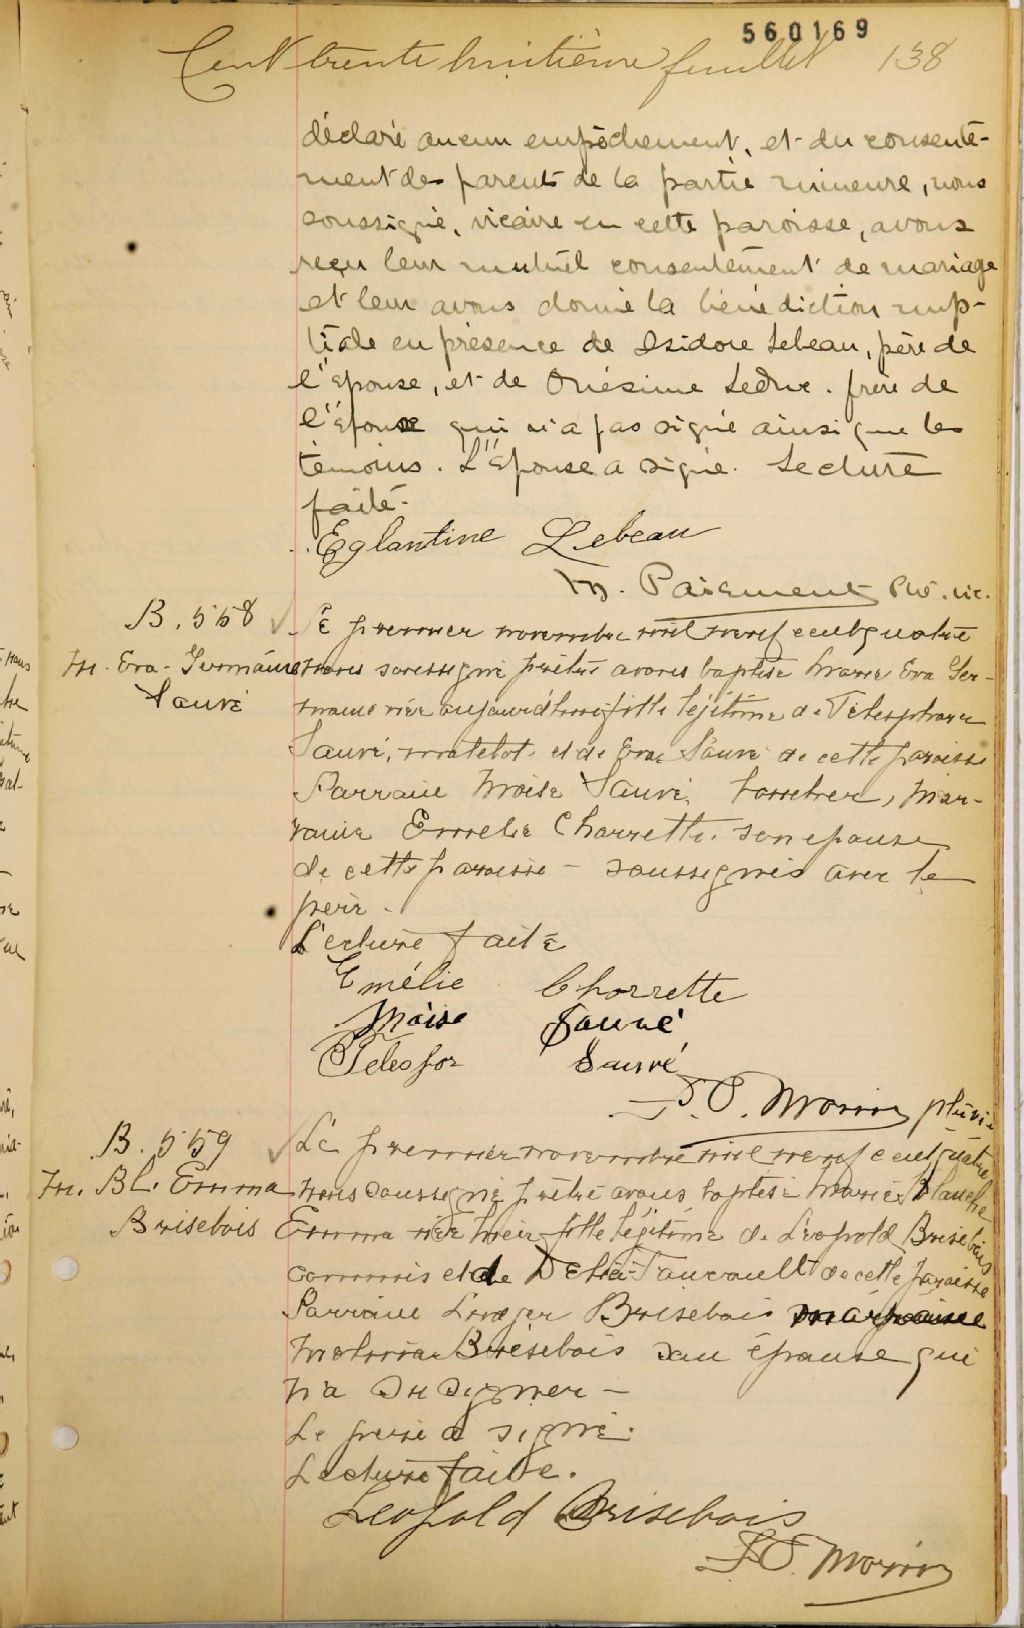 560169
Cent trente huitième feuillet 138
déclaré aucun empêchement, et du consente-
ment des parents de la partie mineure, nous
soussigné, vicaire en cette paroisse, avons
reçu leur mutuel consentement de mariage
et leur avons donné la bénédiction nup-
tiale en présence de Isidore Lebeau, père de
l'Epouse, et de Onésime Leduc. frère de
l'époux qui n'a pas signé ainsi que les
témoins. L'Epouse a signé. Lecture
faite.
Eglantine Lebeau
M. Paiement Ptr. vic.
B. 558
M. Eva-Germaine
Sauvé
Le premier novembre mil neuf cent quatre
nous soussigné prêtre avons baptisé Marie Eva Ger-
maine née aujourd'hui fille légitime de Telesphore
Sauvé, matelot et de Eva Sauvé de cette paroisse
Parrain Moïse Sauvé, boucher, Mar-
raine Emelie Charrette son epouse
de cette paroisse - soussignés avec le
père.
Lecture faite
Emélie Charrette
Moise Sauvé
Telesfor Sauvé
J. O. Morin ptre vic
B. 559
M. Bl. Emma
Brisebois
Le premier novembre mil neuf cent quatre
nous soussigné prêtre avons baptisé Marie Blanche
Emma née hier fille légitime de Léopold Brisebois
commis et de Delia Faucault de cette paroisse
Parrain Ludger Brisebois marraine
Brisebois son épouse qui
n'a su signer -
Le père a signé.
Lecture faite.
Leopold Brisebois
J. O. Morin